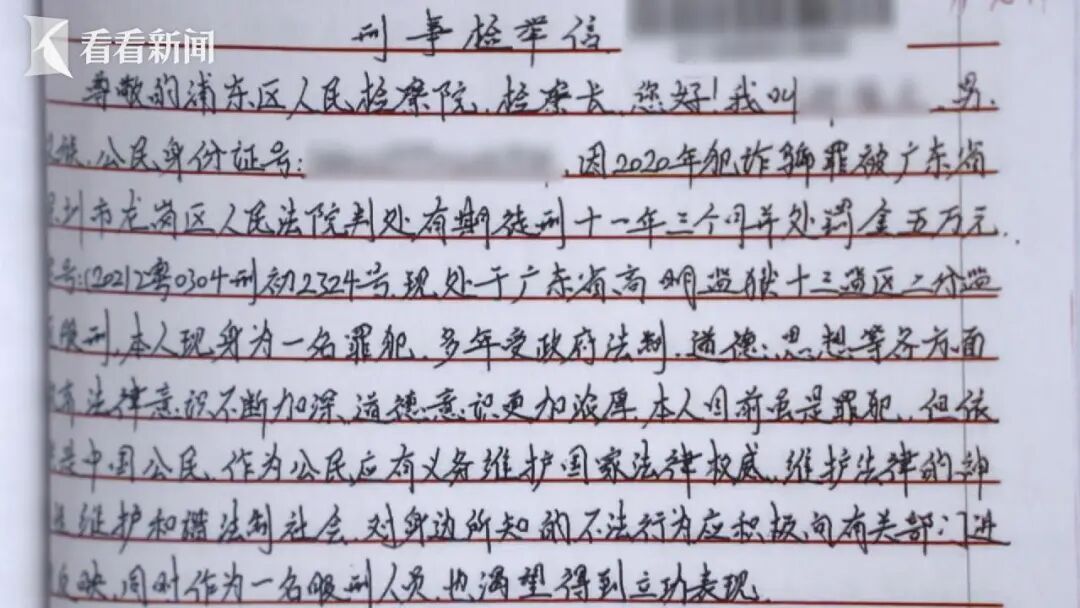 看看新闻
刑事检举信
尊敬的浦东区人民检察院、检察长、您好!我叫 男、
族、公民身份证号: ,因2020年犯诈骗罪被广东省
圳市龙岗区人民法院判处有期徒刑十一年三个月并处罚金五万元、
号:(2021)粤0304刑初2324号、现处于广东省高明监狱十三监区二分监
服刑,本人现身为一名罪犯、多年受政府法制、道德、思想等各方面
法律意识不断加深、道德意识更加浓厚、本人目前虽是罪犯、但依
是中国公民、作为公民应有义务维护国家法律权威、维护法律的神
维护和谐法制社会、对身边所知的不法行为应积极向有关部门进
反映、同时作为一名服刑人员、也渴望得到立功表现、